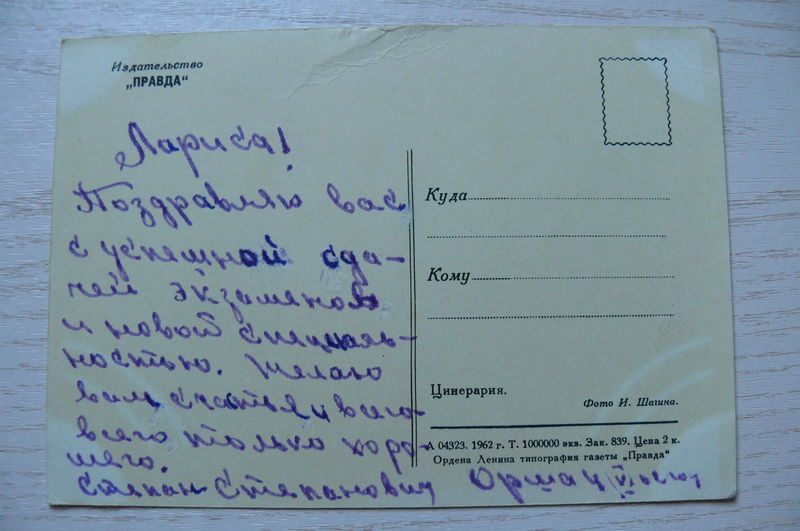 Издательство
„ПРАВДА“
Лариса!
Поздравляю вас
с успешной сда-
чей экзаменов
и новой специаль-
ностью. Желаю
вам счастья и всего-
всего только хоро-
шего.
Степан Степанович
Куда
Кому
Цинерария.
Фото И. Шагина.
А 04323. 1962 г. Т. 1000000 экз. Зак. 839. Цена 2 к.
Ордена Ленина типография газеты „Правда“